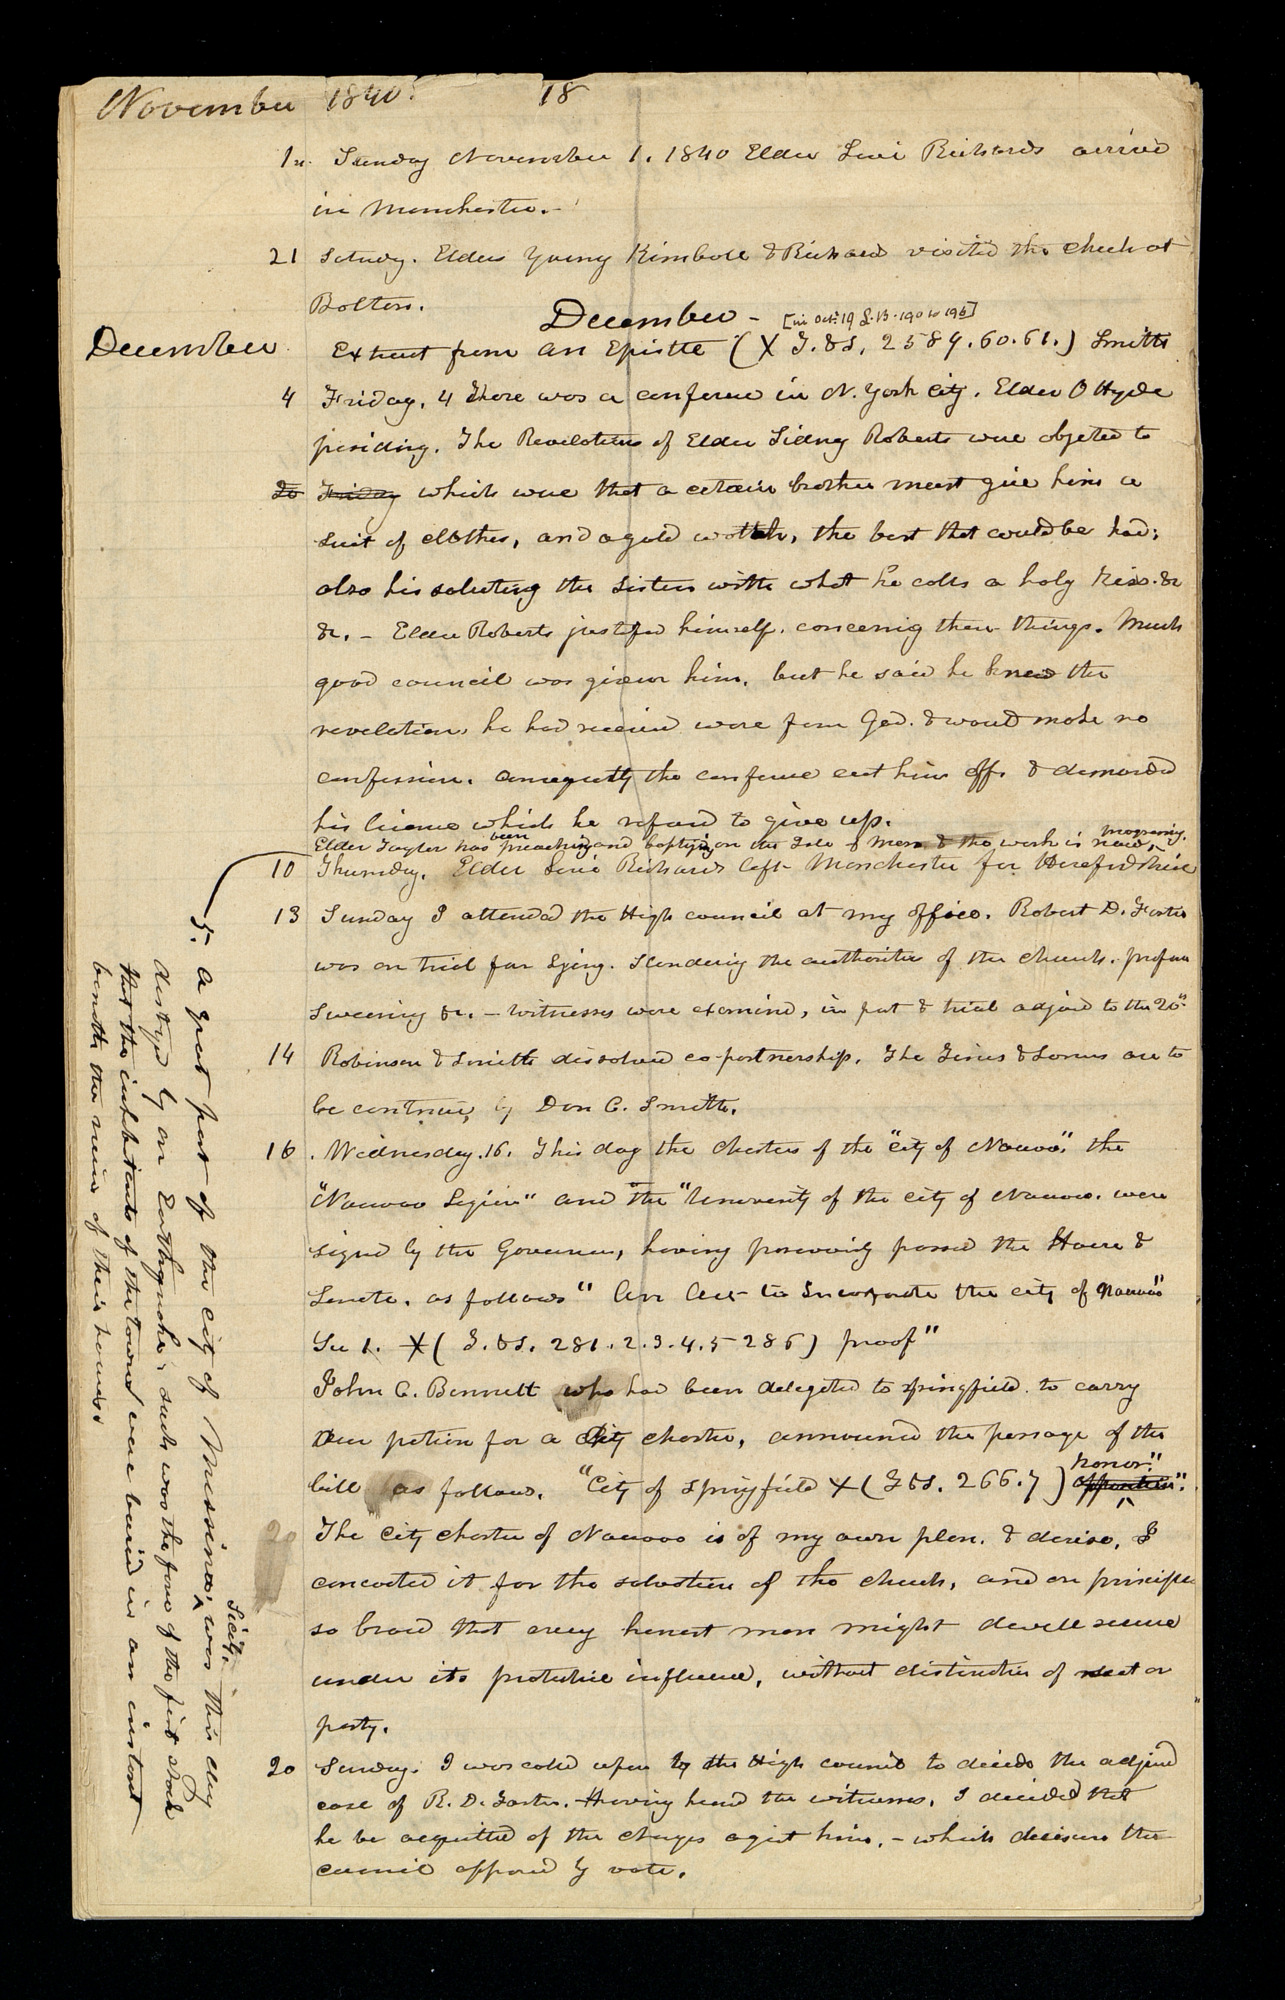 November 1840. 18
1st. Sunday November 1. 1840 Elder Levi Richards arrived
in Manchester.-
21 Saturday. Elders Young Kimball & Richards visited the church at
Bolton.
December - [in Oct. 19 L.B. 190 to 196]
December
Extract from an Epistle (X T.&S. 258 9.60.61.) Smith
4 Friday, 4 There was a conference in N. York city. Elder O Hyde
presiding. The Revelations of Elder Sidney Roberts were objected to
20 Friday which were that a certain brother must give him a
suit of clothes, and a gold watch, the best that could be had;
also his saluting the sisters with what he calls a holy kiss. &c
&c. - Elder Roberts justified himself. concerning these things. Much
good council was given him. but he said he knew the
revelations he had received were from God. & would make no
confession. consequently the conference cut him off. & demanded
his license which he refused to give up.
Elder Taylor has been preaching and baptizing on the Isle of Man & the work is now progressing.
10 Thursday. Elder Levi Richards left Manchester for Herefordshire
13 Sunday I attended the High council at my office. Robert D. Foster
was on trial for Lying. slandering the authorities of the church. profane
swearing &c. - witnesses were examined, in part & trial adjoind to the 20th.
14 Robinson & Smith dissolved co-partnership. The Times & Seasons are to
be continued by Don C. Smith.
16 . Wednesday. 16. This day the charters of the "city of Nauvoo" the
"Nauvoo Legion" and the "University of the city of Nauvoo. were
signed by the Governor, having previously passed the House &
Senate. as follows "An Act to Incorporate the city of Nauvoo"
Sec 1. X ( T.&S. 281.2.3.4.5-286) proof"
John C. Bennett who had been delegated to springfield. to carry
our petition for a City charter, announced the passage of the
bill as follows. "City of Springfield X ( T&S. 266.7) honor."
20 The City charter of Nauvoo is of my own plan. & device, I
concocted it for the salvation of the church, and on principles
so broad that every honest man might dwell secure
under its protective influence, without distinction of sect or
party.
20 Sunday. I was called upon by the High council to decide the adjoind
case of R. D. Foster. Having heard the witnesses, I decided that
he be acquitted of the charges against him, - which decision the
council approved by vote.
5. a great part of the city of Messina, Sicily, was this day
destroyed by an Earthquake, such was the force of the first shock
that the inhabitants of the town were buried in an instant
beneath the ruins of their houses